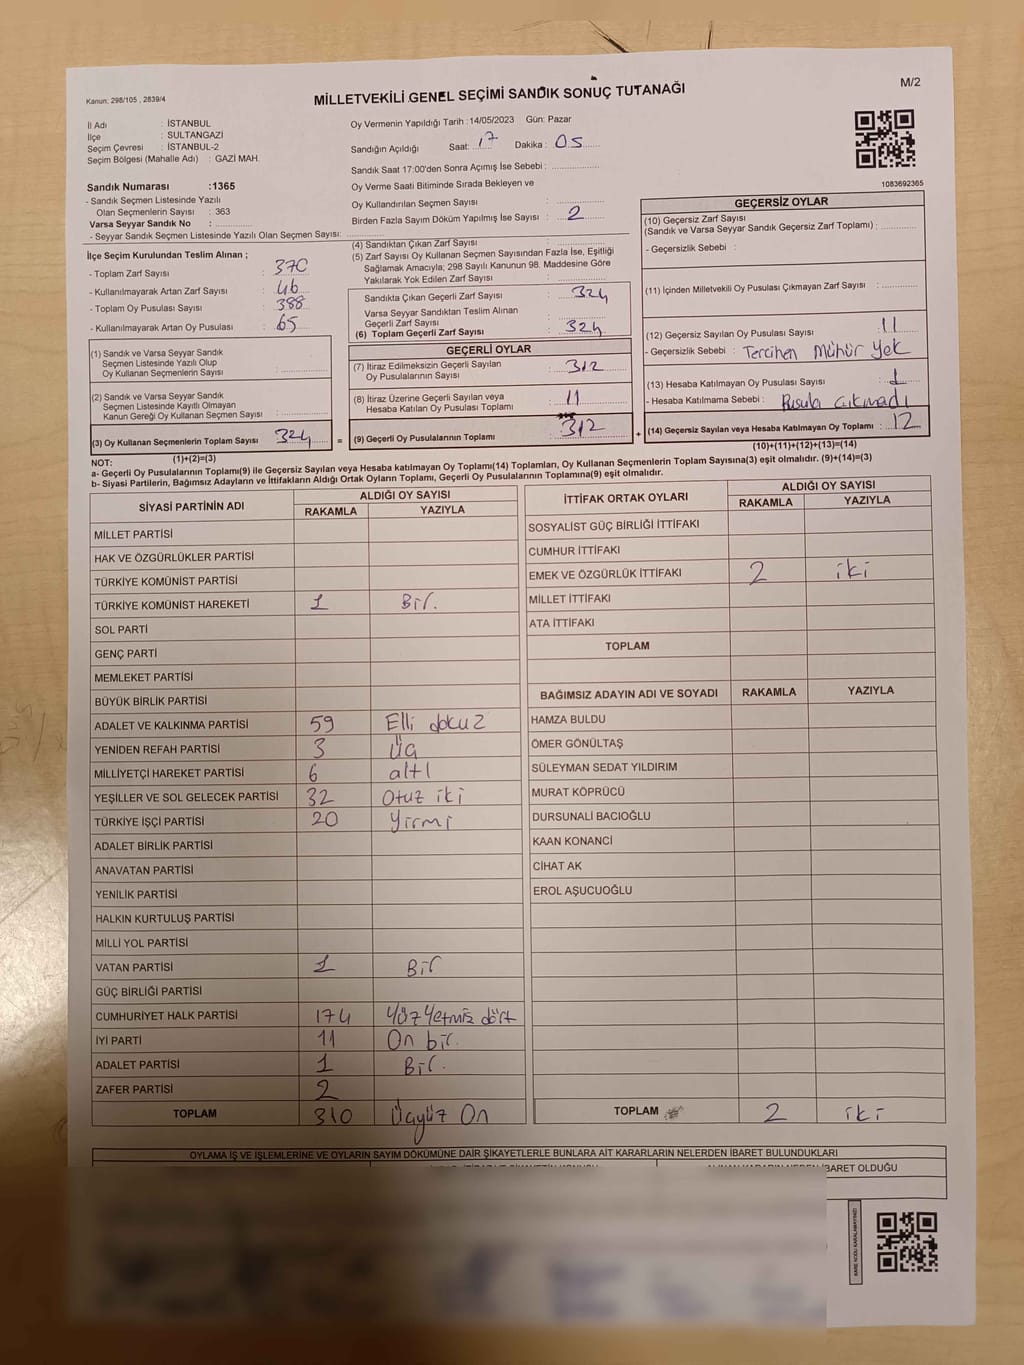 Kanun: 298/105 , 2839/4
MİLLETVEKİLİ GENEL SEÇİMİ SANDIK SONUÇ TUTANAĞI
M/2
İl Adı : İSTANBUL
İlçe : SULTANGAZİ
Seçim Çevresi : İSTANBUL-2
Seçim Bölgesi (Mahalle Adı) : GAZİ MAH.
Sandık Numarası :1365
- Sandık Seçmen Listesinde Yazılı
Olan Seçmenlerin Sayısı : 363
Varsa Seyyar Sandık No :
- Seyyar Sandık Seçmen Listesinde Yazılı Olan Seçmen Sayısı:
Oy Vermenin Yapıldığı Tarih :14/05/2023 Gün: Pazar
Sandığın Açıldığı Saat: 17 Dakika : 05
Sandık Saat 17:00'den Sonra Açımış İse Sebebi :
Oy Verme Saati Bitiminde Sırada Bekleyen ve
Oy Kullandırılan Seçmen Sayısı :
Birden Fazla Sayım Döküm Yapılmış İse Sayısı : 2
1083692365
İlçe Seçim Kurulundan Teslim Alınan ;
- Toplam Zarf Sayısı : 370
- Kullanılmayarak Artan Zarf Sayısı : 46
- Toplam Oy Pusulası Sayısı : 388
- Kullanılmayarak Artan Oy Pusulası : 65
(1) Sandık ve Varsa Seyyar Sandık
Seçmen Listesinde Yazılı Olup
Oy Kullanan Seçmenlerin Sayısı :
(2) Sandık ve Varsa Seyyar Sandık
Seçmen Listesinde Kayıtlı Olmayan
Kanun Gereği Oy Kullanan Seçmen Sayısı :
(3) Oy Kullanan Seçmenlerin Toplam Sayısı 324
(1)+(2)=(3)
(4) Sandıktan Çıkan Zarf Sayısı :
(5) Zarf Sayısı Oy Kullanan Seçmen Sayısından Fazla İse, Eşitliği
Sağlamak Amacıyla; 298 Sayılı Kanunun 98. Maddesine Göre
Yakılarak Yok Edilen Zarf Sayısı :
Sandıkta Çıkan Geçerli Zarf Sayısı : 324
Varsa Seyyar Sandıktan Teslim Alınan
Geçerli Zarf Sayısı :
(6) Toplam Geçerli Zarf Sayısı : 324
GEÇERLİ OYLAR
(7) İtiraz Edilmeksizin Geçerli Sayılan
Oy Pusulalarının Sayısı : 312
(8) İtiraz Üzerine Geçerli Sayılan veya
Hesaba Katılan Oy Pusulası Toplamı : 11
= (9) Geçerli Oy Pusulalarının Toplamı : 312 +
GEÇERSİZ OYLAR
(10) Geçersiz Zarf Sayısı
(Sandık ve Varsa Seyyar Sandık Geçersiz Zarf Toplamı) :
- Geçersizlik Sebebi :
(11) İçinden Milletvekili Oy Pusulası Çıkmayan Zarf Sayısı :
(12) Geçersiz Sayılan Oy Pusulası Sayısı : 11
- Geçersizlik Sebebi : Tercihen Mühür Yok
(13) Hesaba Katılmayan Oy Pusulası Sayısı : 1
- Hesaba Katılmama Sebebi : Pusula Çıkmadı
(14) Geçersiz Sayılan veya Hesaba Katılmayan Oy Toplamı : 12
(10)+(11)+(12)+(13)=(14)
NOT:
a- Geçerli Oy Pusulalarının Toplamı(9) ile Geçersiz Sayılan veya Hesaba katılmayan Oy Toplamı(14) Toplamları, Oy Kullanan Seçmenlerin Toplam Sayısına(3) eşit olmalıdır. (9)+(14)=(3)
b- Siyasi Partilerin, Bağımsız Adayların ve İttifakların Aldığı Ortak Oyların Toplamı, Geçerli Oy Pusulalarının Toplamına(9) eşit olmalıdır.
SİYASİ PARTİNİN ADI ALDIĞI OY SAYISI
RAKAMLA YAZIYLA
MİLLET PARTİSİ
HAK VE ÖZGÜRLÜKLER PARTİSİ
TÜRKİYE KOMÜNİST PARTİSİ
TÜRKİYE KOMÜNİST HAREKETİ 1 Bir.
SOL PARTİ
GENÇ PARTİ
MEMLEKET PARTİSİ
BÜYÜK BİRLİK PARTİSİ
ADALET VE KALKINMA PARTİSİ 59 Elli dokuz
YENİDEN REFAH PARTİSİ 3 Üç
MİLLİYETÇİ HAREKET PARTİSİ 6 altı
YEŞİLLER VE SOL GELECEK PARTİSİ 32 Otuz iki
TÜRKİYE İŞÇİ PARTİSİ 20 Yirmi
ADALET BİRLİK PARTİSİ
ANAVATAN PARTİSİ
YENİLİK PARTİSİ
HALKIN KURTULUŞ PARTİSİ
MİLLİ YOL PARTİSİ
VATAN PARTİSİ 1 Bir
GÜÇ BİRLİĞİ PARTİSİ
CUMHURİYET HALK PARTİSİ 174 Yüz Yetmiş dört
İYİ PARTİ 11 On bir.
ADALET PARTİSİ 1 Bir.
ZAFER PARTİSİ 2
TOPLAM 310 Üçyüz On
İTTİFAK ORTAK OYLARI ALDIĞI OY SAYISI
RAKAMLA YAZIYLA
SOSYALİST GÜÇ BİRLİĞİ İTTİFAKI
CUMHUR İTTİFAKI
EMEK VE ÖZGÜRLÜK İTTİFAKI 2 iki
MİLLET İTTİFAKI
ATA İTTİFAKI
TOPLAM
BAĞIMSIZ ADAYIN ADI VE SOYADI RAKAMLA YAZIYLA
HAMZA BULDU
ÖMER GÖNÜLTAŞ
SÜLEYMAN SEDAT YILDIRIM
MURAT KÖPRÜCÜ
DURSUNALİ BACIOĞLU
KAAN KONANCİ
CİHAT AK
EROL AŞUCUOĞLU
TOPLAM 2 iki
OYLAMA İŞ VE İŞLEMLERİNE VE OYLARIN SAYIM DÖKÜMÜNE DAİR ŞİKAYETLERLE BUNLARA AİT KARARLARIN NELERDEN İBARET BULUNDUKLARI
İBARET OLDUĞU
KARE KODU KARALAMAYINIZ!